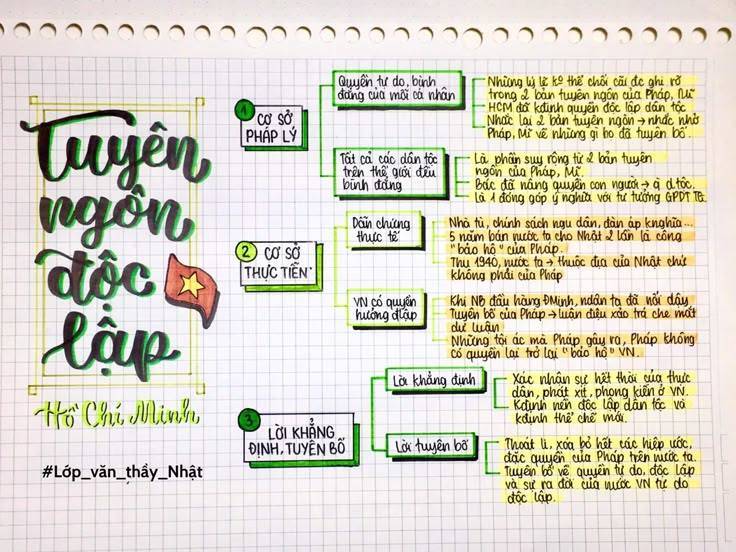 Tuyên
ngôn
độc
lập
Hồ Chí Minh
#Lớp_văn_thầy_Nhật
1
CƠ SỞ
PHÁP LÝ
Quyền tự do, bình
đẳng của mỗi cá nhân
Những lý lẽ ko thể chối cãi đc ghi rõ
trong 2 bản tuyên ngôn của Pháp, Mĩ
HCM đã kđịnh quyền độc lập dân tộc
Nhắc lại 2 bản tuyên ngôn → nhắc nhở
Pháp, Mĩ về những gì họ đã tuyên bố.
Tất cả các dân tộc
trên thế giới đều
bình đẳng
Là phần suy rộng từ 2 bản tuyên
ngôn của Pháp, Mĩ.
Bác đã nâng quyền con người → q̀ d.tộc.
là 1 đóng góp ý nghĩa với tư tưởng GPDT TG.
2
CƠ SỞ
THỰC TIỄN
Dẫn chứng
thực tế
Nhà tù, chính sách ngu dân, đàn áp knghĩa...
5 năm bán nước ta cho Nhật 2 lần là công
"bảo hộ" của Pháp.
Thu 1940, nước ta → thuộc địa của Nhật chứ
không phải của Pháp
VN có quyền
hưởng đlập
Khi NB đầu hàng ĐMinh, ndân ta đã nổi dậy
Tuyên bố của Pháp → luận điệu xảo trá che mắt
dư luận
Những tội ác mà Pháp gây ra, Pháp không
có quyền lại trở lại "bảo hộ" VN.
3
LỜI KHẲNG
ĐỊNH, TUYÊN BỐ
Lời khẳng định
Xác nhận sự hết thời của thực
dân, phát xít, phong kiến ở VN.
Kđịnh nền độc lập dân tộc và
kđịnh thể chế mới.
Lời tuyên bố
Thoát li, xoá bỏ hết các hiệp ước,
đặc quyền của Pháp trên nước ta.
Tuyên bố về quyền tự do, độc lập
và sự ra đời của nước VN tự do
độc lập.